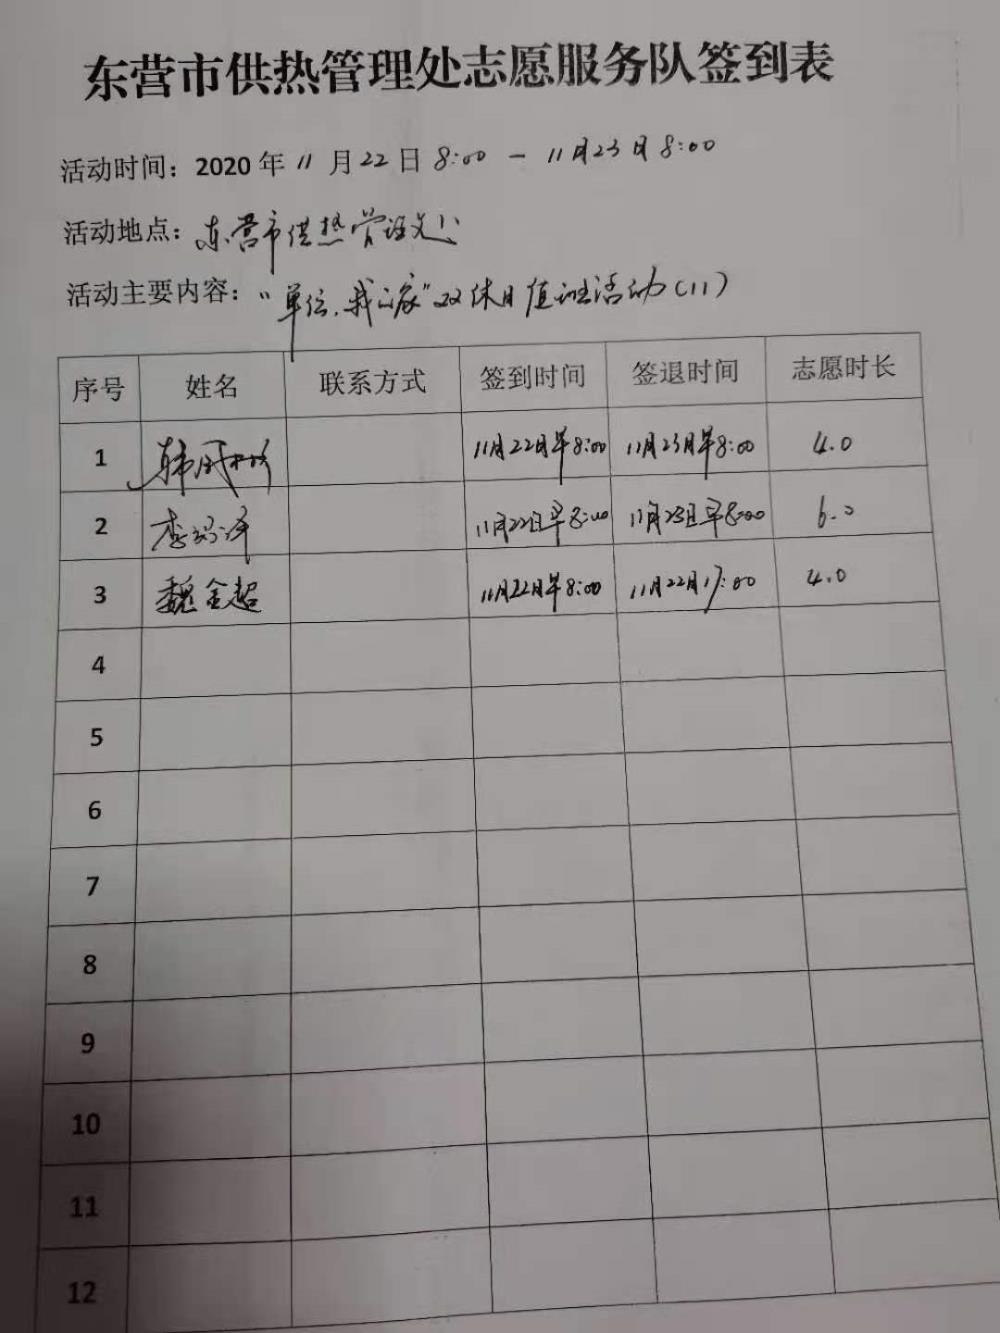 东营市供热管理处志愿服务队签到表
活动时间：2020年11月22日8:00 — 11月23日8:00
活动地点：东营市供热管理
活动主要内容："单位，我的家"双休日值班活动（11）
序号 姓名 联系方式 签到时间 签退时间 志愿时长
1 韩 11月22日早8:00 11月23日早8:00 4.0
2 李 11月22日早8:00 11月23日早8:00 6.0
3 魏金超 11月22日早8:00 11月22日17:00 4.0
4
5
6
7
8
9
10
11
12